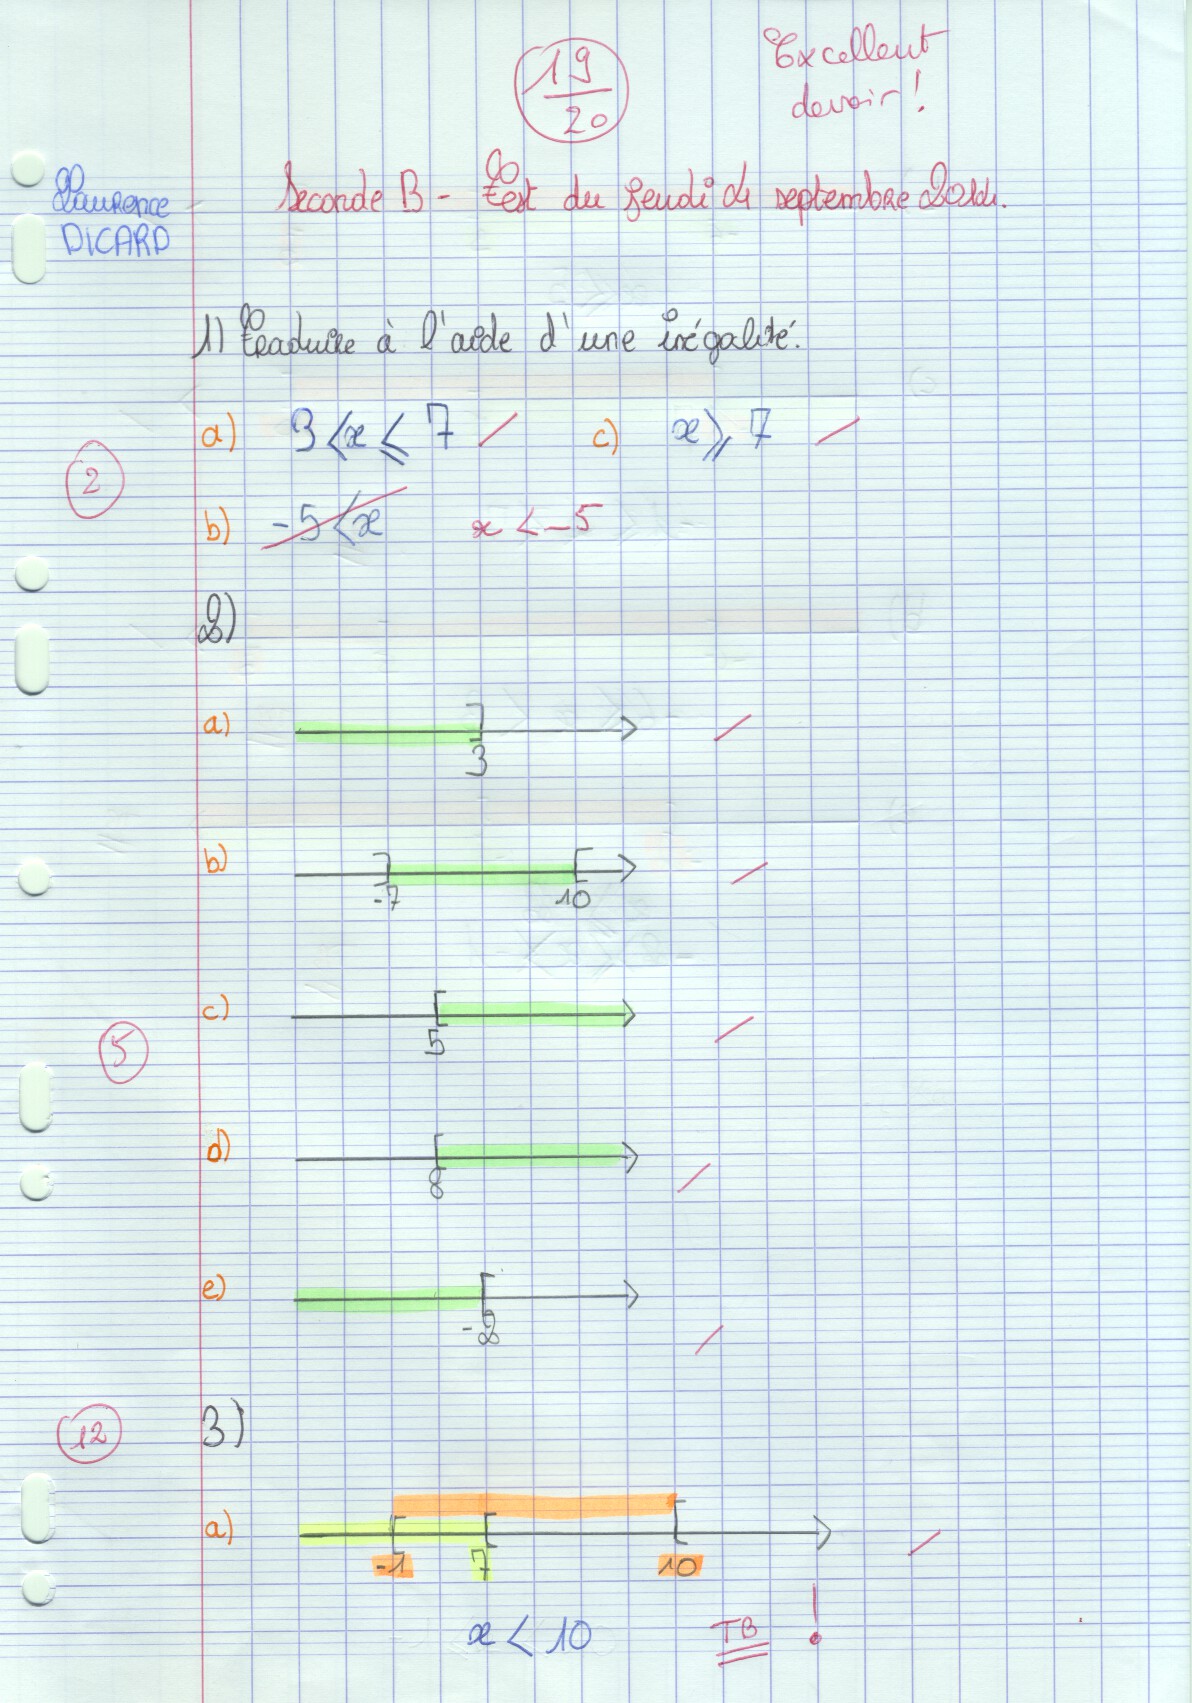 19
20
Excellent
devoir!
Laurence
DICARD
Seconde B - Test du jeudi 4 septembre 2014.
1) Traduire à l'aide d'une inégalité.
a) 3 < x ⩽ 7 c) x ⩾ 7
2
b) -5 < x x < -5
2)
a)
3
b)
-7 10
c)
5
5
d)
8
e)
-2
12
3)
a)
-1 7 10
x < 10 TB !